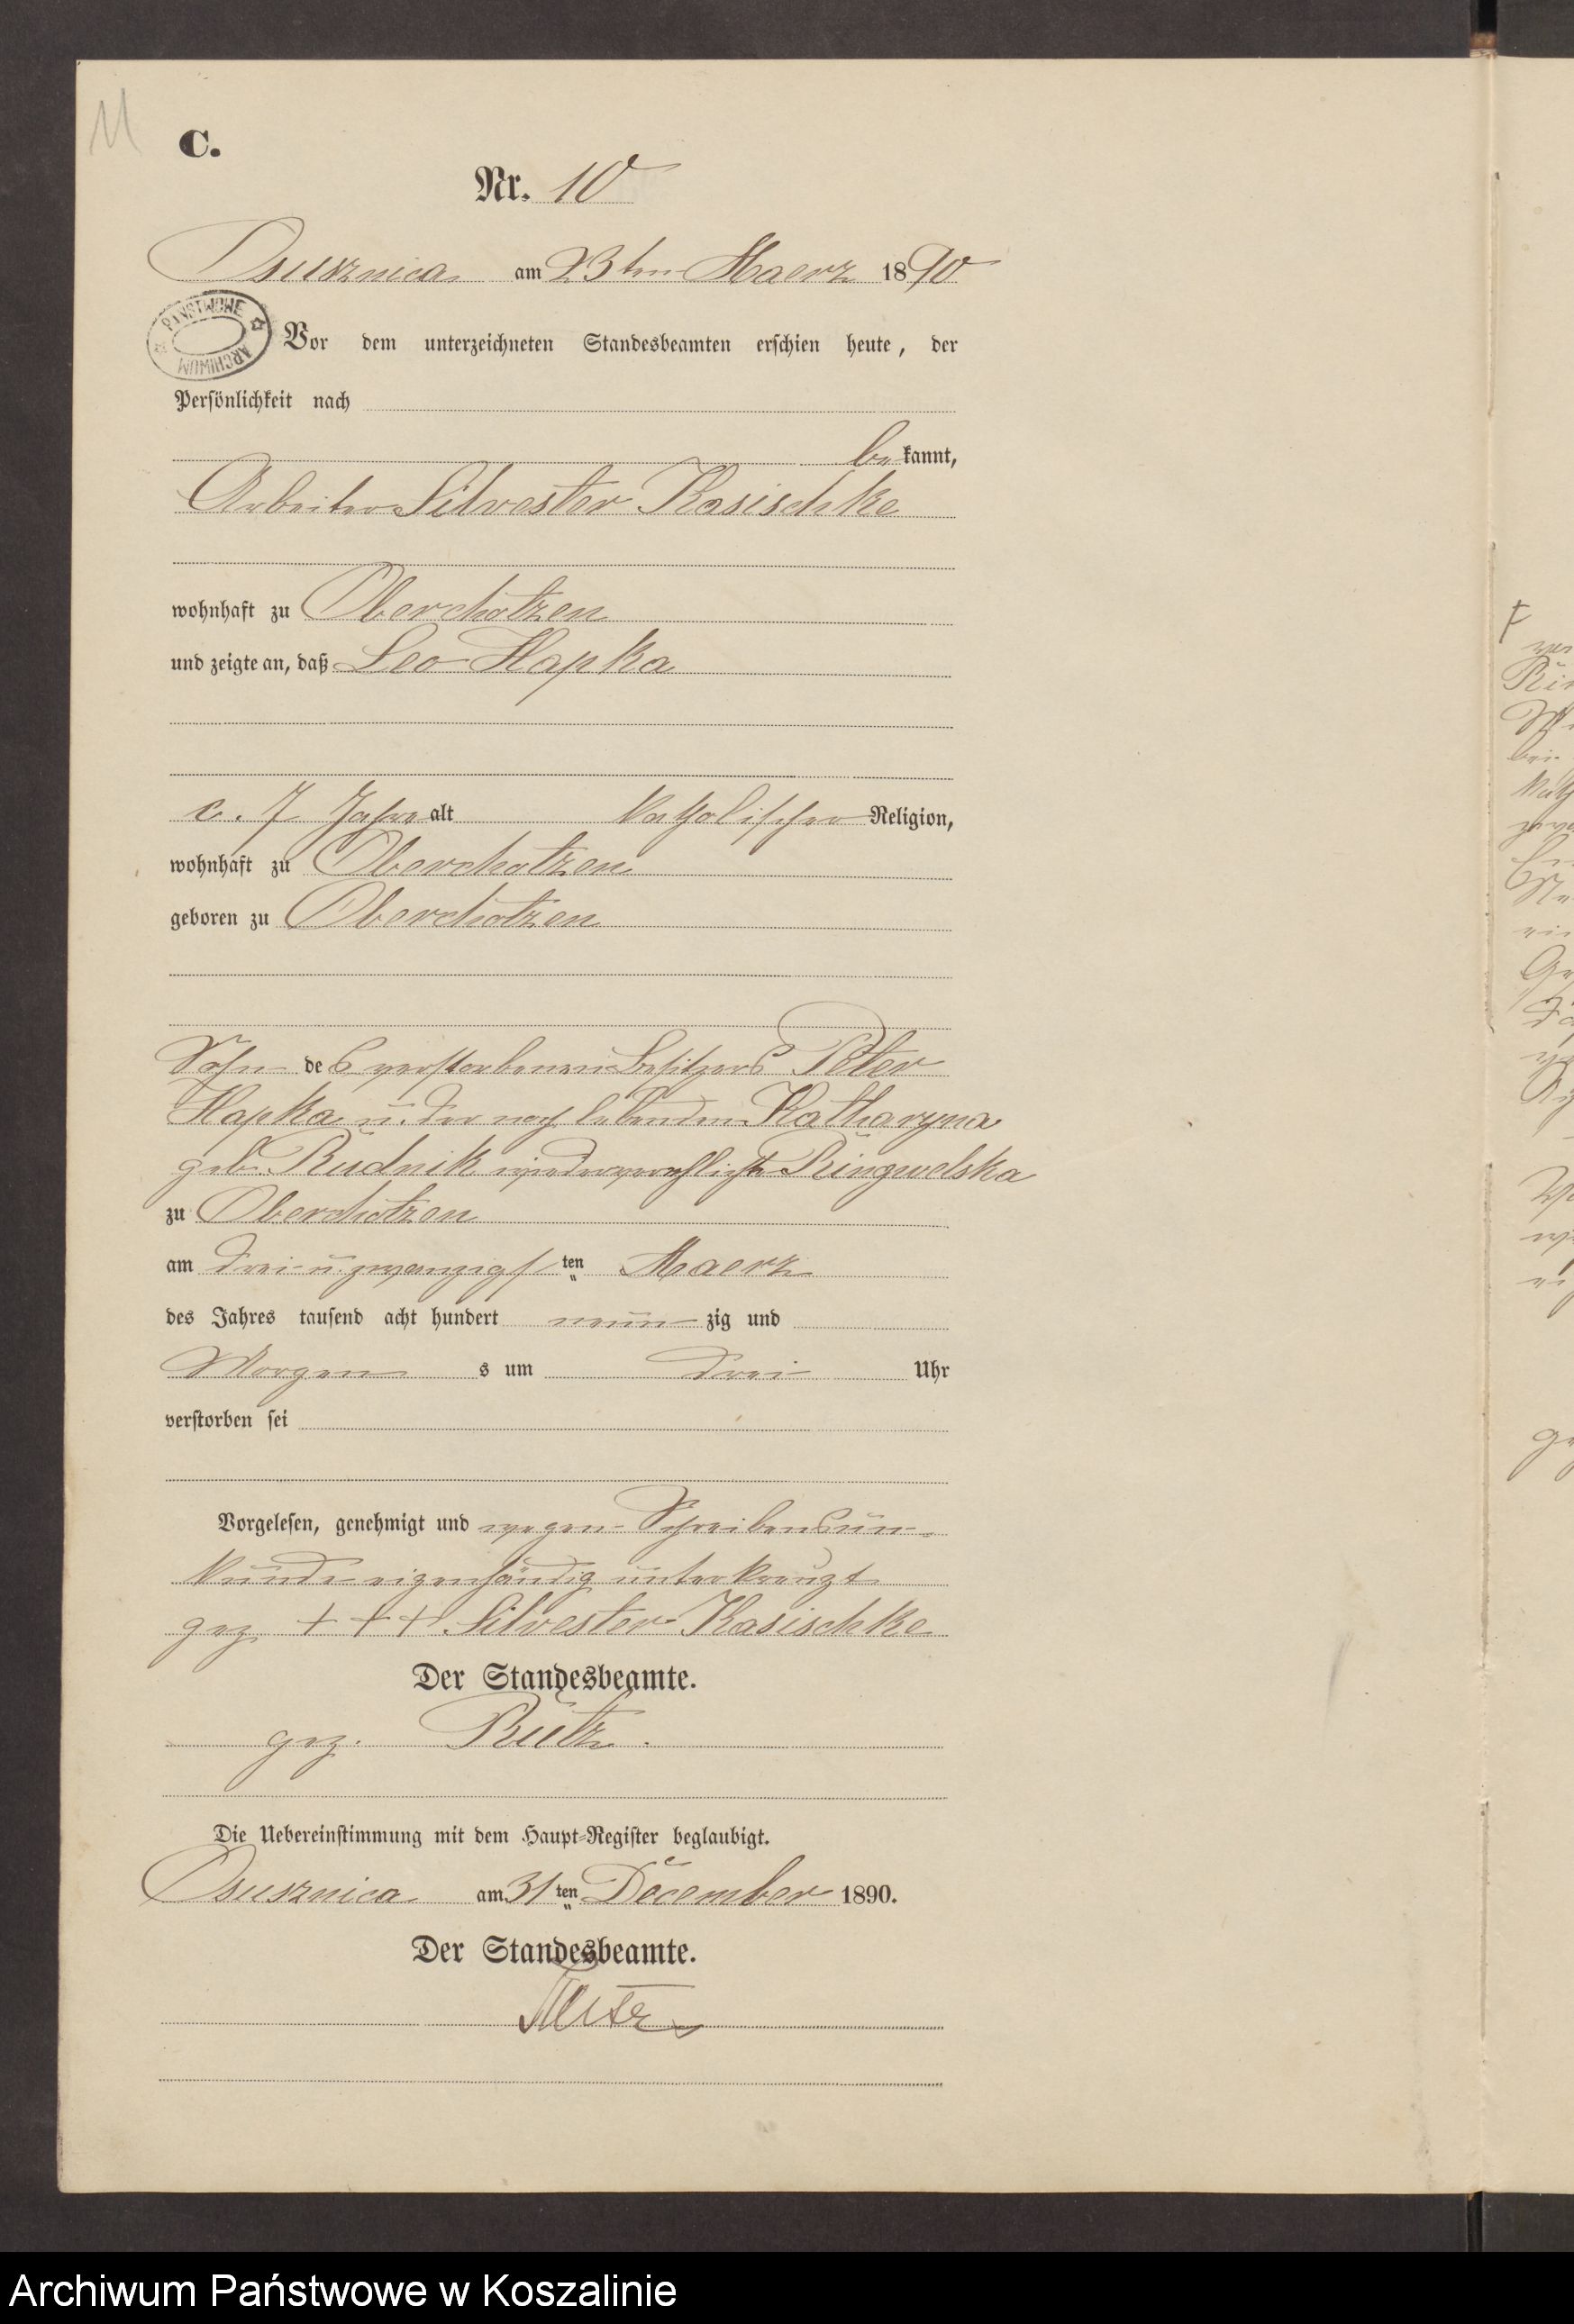 11
C.
Nr. 10
Dsusznica am 23ten Maerz 1890
PAŃSTWOWE ARCHIWUM
Vor dem unterzeichneten Standesbeamten erschien heute, der
Persönlichkeit nach
bekannt,
Arbeiter Silvester Kasischke
wohnhaft zu Oberchotzen
und zeigte an, daß Leo Hapka
c. 7 Jahre alt katholischer Religion,
wohnhaft zu Oberchotzen
geboren zu Oberchotzen
Sohn des verstorbenen Besitzers Peter
Hapka u. der noch lebenden Katharyna
geb. Rudnik wiederverehlichte
zu Oberchotzen
am drei u. zwanzigsten Maerz
des Jahres tausend acht hundert neunzig und
Morgens um drei Uhr
verstorben sei
Vorgelesen, genehmigt und wegen Schreibensun-
kunde eigenhändig unterkreuzt
gez. +++ Silvester Kasischke
Der Standesbeamte.
gez. Rutz.
Die Uebereinstimmung mit dem Haupt-Register beglaubigt.
Dsusznica am 31ten December 1890.
Der Standesbeamte.
Rutz
Archiwum Państwowe w Koszalinie